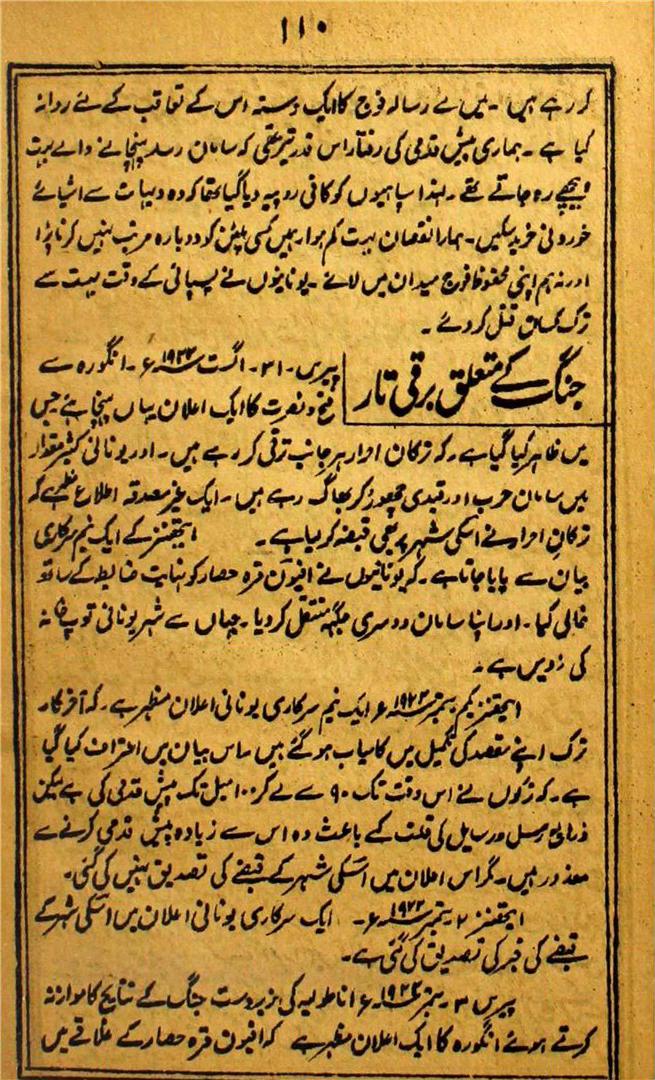 ۱۱۰
کررہے ہیں۔ میں نے رسالہ فوج کا ایک دستہ اس کے تعاقب کے لئے روانہ
کیا ہے۔ ہماری پیش قدمی کی رفتار اس قدر تیز تھی کہ سامان رسد پہنچانے والے بہت
پیچھے رہ جاتے تھے۔ لہذا سپاہیوں کو کافی روپیہ دیا گیا تھا کہ وہ دیہات سے اشیائے
خوردنی خرید سکیں۔ ہمارا نقصان بہت کم ہوا۔ ہمیں کسی پلٹن کو دوبارہ مرتب نہیں کرنا پڑا
اور نہ ہم اپنی محفوظ فوج میدان میں لائے۔ یونانیوں نے پسپائی کے وقت بہت سے
ترک کسان قتل کردئے۔
جنگ کے متعلق برقی تار
پیرس۔ ۳۱۔ اگست ۱۹۲۲ء۔ انگورہ سے
فتح و نصرت کا ایک اعلان یہاں پہنچا ہے جس
میں ظاہر کیا گیا ہے۔ کہ ترکان احرار ہر جانب ترقی کر رہے ہیں۔ اور یونانی کثیر مقدار
میں سامان حرب اور قیدی چھوڑ کر بھاگ رہے ہیں۔ ایک غیر مصدقہ اطلاع ہے کہ
ترکان احرار نے اسکی شہر پر بھی قبضہ کر لیا ہے۔ ایتھنز کے ایک نیم سرکاری
بیان سے پایا جاتا ہے۔ کہ یونانیوں نے افیون قرہ حصار کو نہایت ضابطہ کے ساتھ
خالی کیا۔ اور اپنا سامان دوسری جگہ منتقل کر دیا۔ جہاں سے شہر یونانی توپخانہ
کی زد میں ہے۔
ایتھنز یکم ستمبر ۱۹۲۲ء ایک نیم سرکاری یونانی اعلان مظہر ہے۔ کہ آخرکار
ترک اپنے مقصد کی تکمیل میں کامیاب ہو گئے ہیں اس بیان میں اعتراف کیا گیا
ہے۔ کہ ترکوں نے اس وقت تک ۹۰ سے لے کر ۱۰۰ میل تک پیش قدمی کی ہے لیکن
ذرائع رسل و رسایل کی قلت کے باعث وہ اس سے زیادہ پیش قدمی کرنے سے
معذور ہیں۔ مگر اس اعلان میں اسکی شہر کے قبضے کی تصدیق نہیں کی گئی۔
ایتھنز ۲ ستمبر ۱۹۲۲ء۔ ایک سرکاری یونانی اعلان میں اسکی شہر کے
قبضے کی خبر کی تصدیق کی گئی ہے۔
پیرس ۳۔ ستمبر ۱۹۲۲ء اناطولیہ کی زبردست جنگ کے نتایج کا موازنہ
کرتے ہوئے انگورہ کا ایک اعلان مظہر ہے کہ افیون قرہ حصار کے علاقے میں